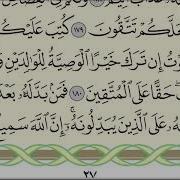 لَعَلَّكُمْ تَتَّقُونَ ١٧٩ كُتِبَ عَلَيْكُمْ
إِن تَرَكَ خَيْرًا ٱلْوَصِيَّةُ لِلْوَٰلِدَيْنِ
حَقًّا عَلَى ٱلْمُتَّقِينَ ١٨٠ فَمَنۢ بَدَّلَهُۥ بَعْدَ
عَلَى ٱلَّذِينَ يُبَدِّلُونَهُۥٓ إِنَّ ٱللَّهَ سَمِيعٌ
٢٧